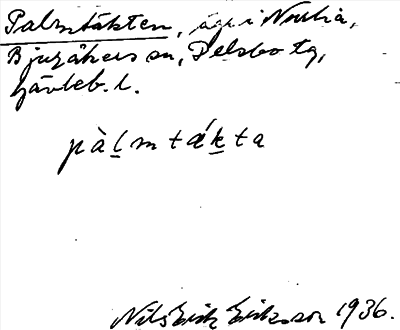 Palmtäkten, äga i Norrbia,
Bjuråkers sn, Delsbo tg,
Gävleb. l.
pàlmtǽkta
Nils Erik Eriksson 1936.